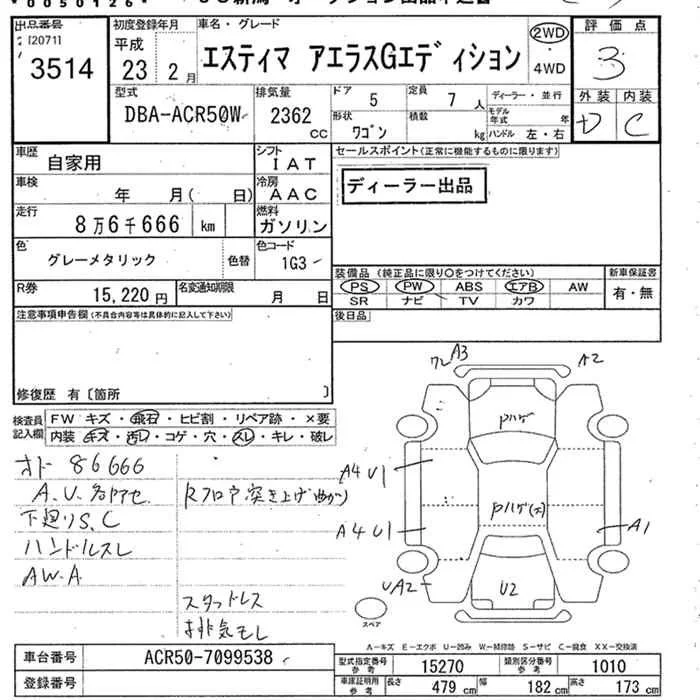 *0050126*
出品番号 初度登録年月 車名・グレード 2WD 評価点
120711 平成 エスティマ アエラスGエディション ・ 3
3514 23 2月 4WD
型式 排気量 ドア 5 定員 7人 ディーラー・並行 外装 内装
DBA-ACR50W 2362cc 形状 ワゴン 積載 kg モデル年式 年 D C
ハンドル 左・右
車歴 自家用 シフト IAT セールスポイント(正常に機能するものに限ります)
車検 年 月( 日) 冷房 AAC ディーラー出品
走行 8万6千666 km 燃料 ガソリン
色 グレーメタリック 色替 色コード 1G3
装備品(純正品に限り○をつけてください) 新車保証書
R券 15,220円 名変通知期限 月 日 PS PW ABS エアB AW 有・無
SR ナビ TV カワ
注意事項申告欄(不具合内容等は具体的に記入して下さい) 後日品
修復歴 有〔箇所 〕
ワレ A3 A2
検査員記入欄 FW キズ・飛石・ヒビ割・リペア跡・×要
内装・キズ・汚レ・コゲ・穴・スレ・キレ・破レ
Pハゲ
オド 86666
A.U.多アセ Rフロア突き上げ曲がり A4 U1
下廻りS.C Pハゲ(大)
ハンドルスレ A4 U1 A1
AW.A UA2 U2
スタッドレス
排気モレ スペア
A-キズ E-エクボ U-凹み W-補修跡 S-サビ C-腐食 XX-交換済
車台番号 ACR50-7099538 型式指定番号参考 15270 類別区分番号参考 1010
車庫証明用参考 長さ 479cm 幅 182cm 高さ 173cm